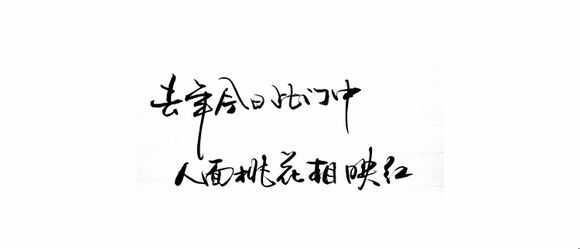 去年今日此门中
人面桃花相映红